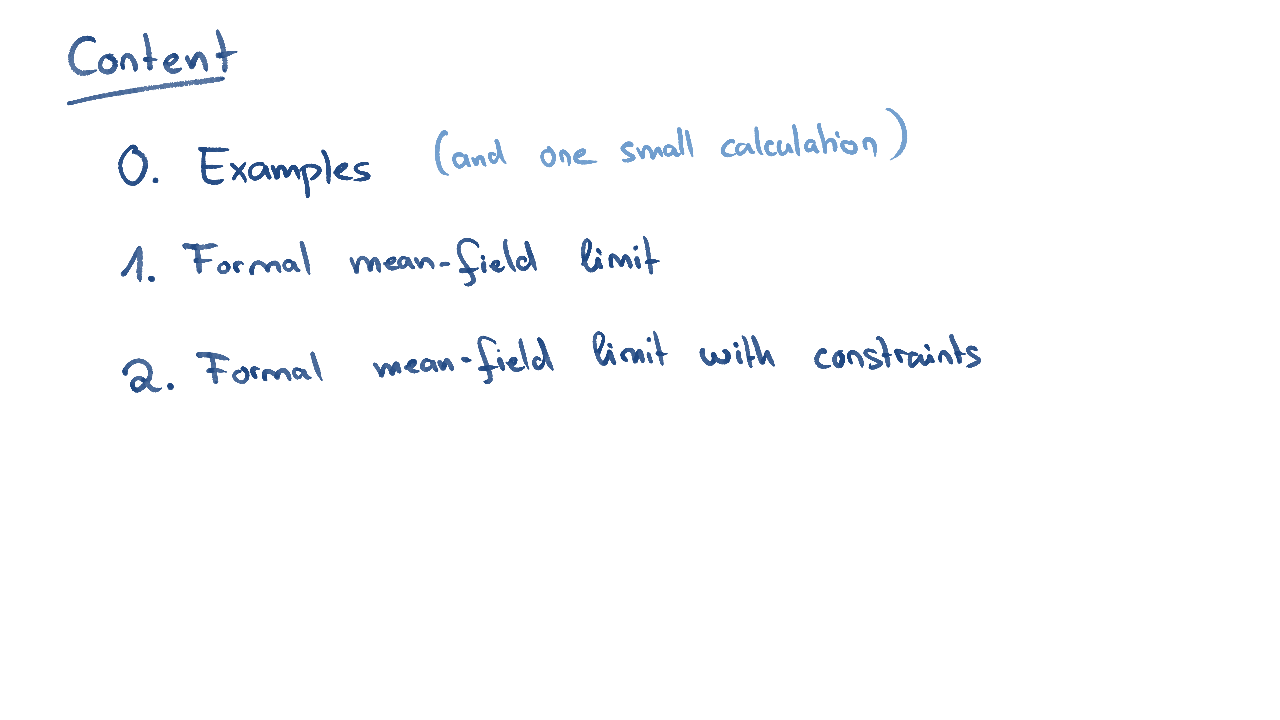 Content
0. Examples (and one small calculation)
1. Formal mean-field limit
2. Formal mean-field limit with constraints